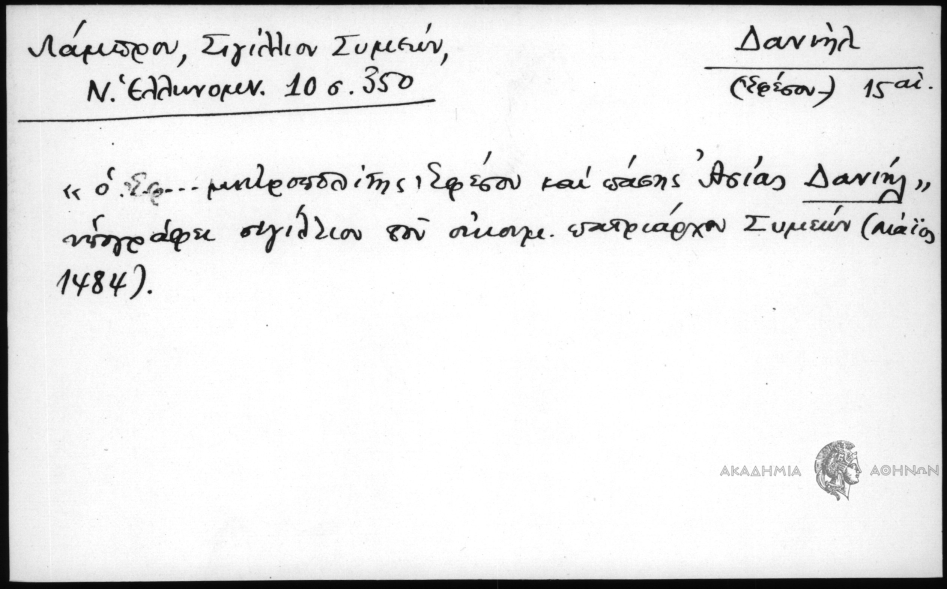 Λάμπρου, Σιγίλλιον Συμεών,
Ν. Ἑλληνομν. 10 σ. 350
Δανιὴλ
(Ἐφέσου) 15 αἰ.
« ὁ Ἐφ... μητροπολίτης Ἐφέσου καὶ πάσης Ἀσίας Δανιήλ »
ὑπογράφει σιγίλλιον τοῦ οἰκουμ. πατριάρχου Συμεών (Μάϊος
1484).
ΑΚΑΔΗΜΙΑ ΑΘΗΝΩΝ